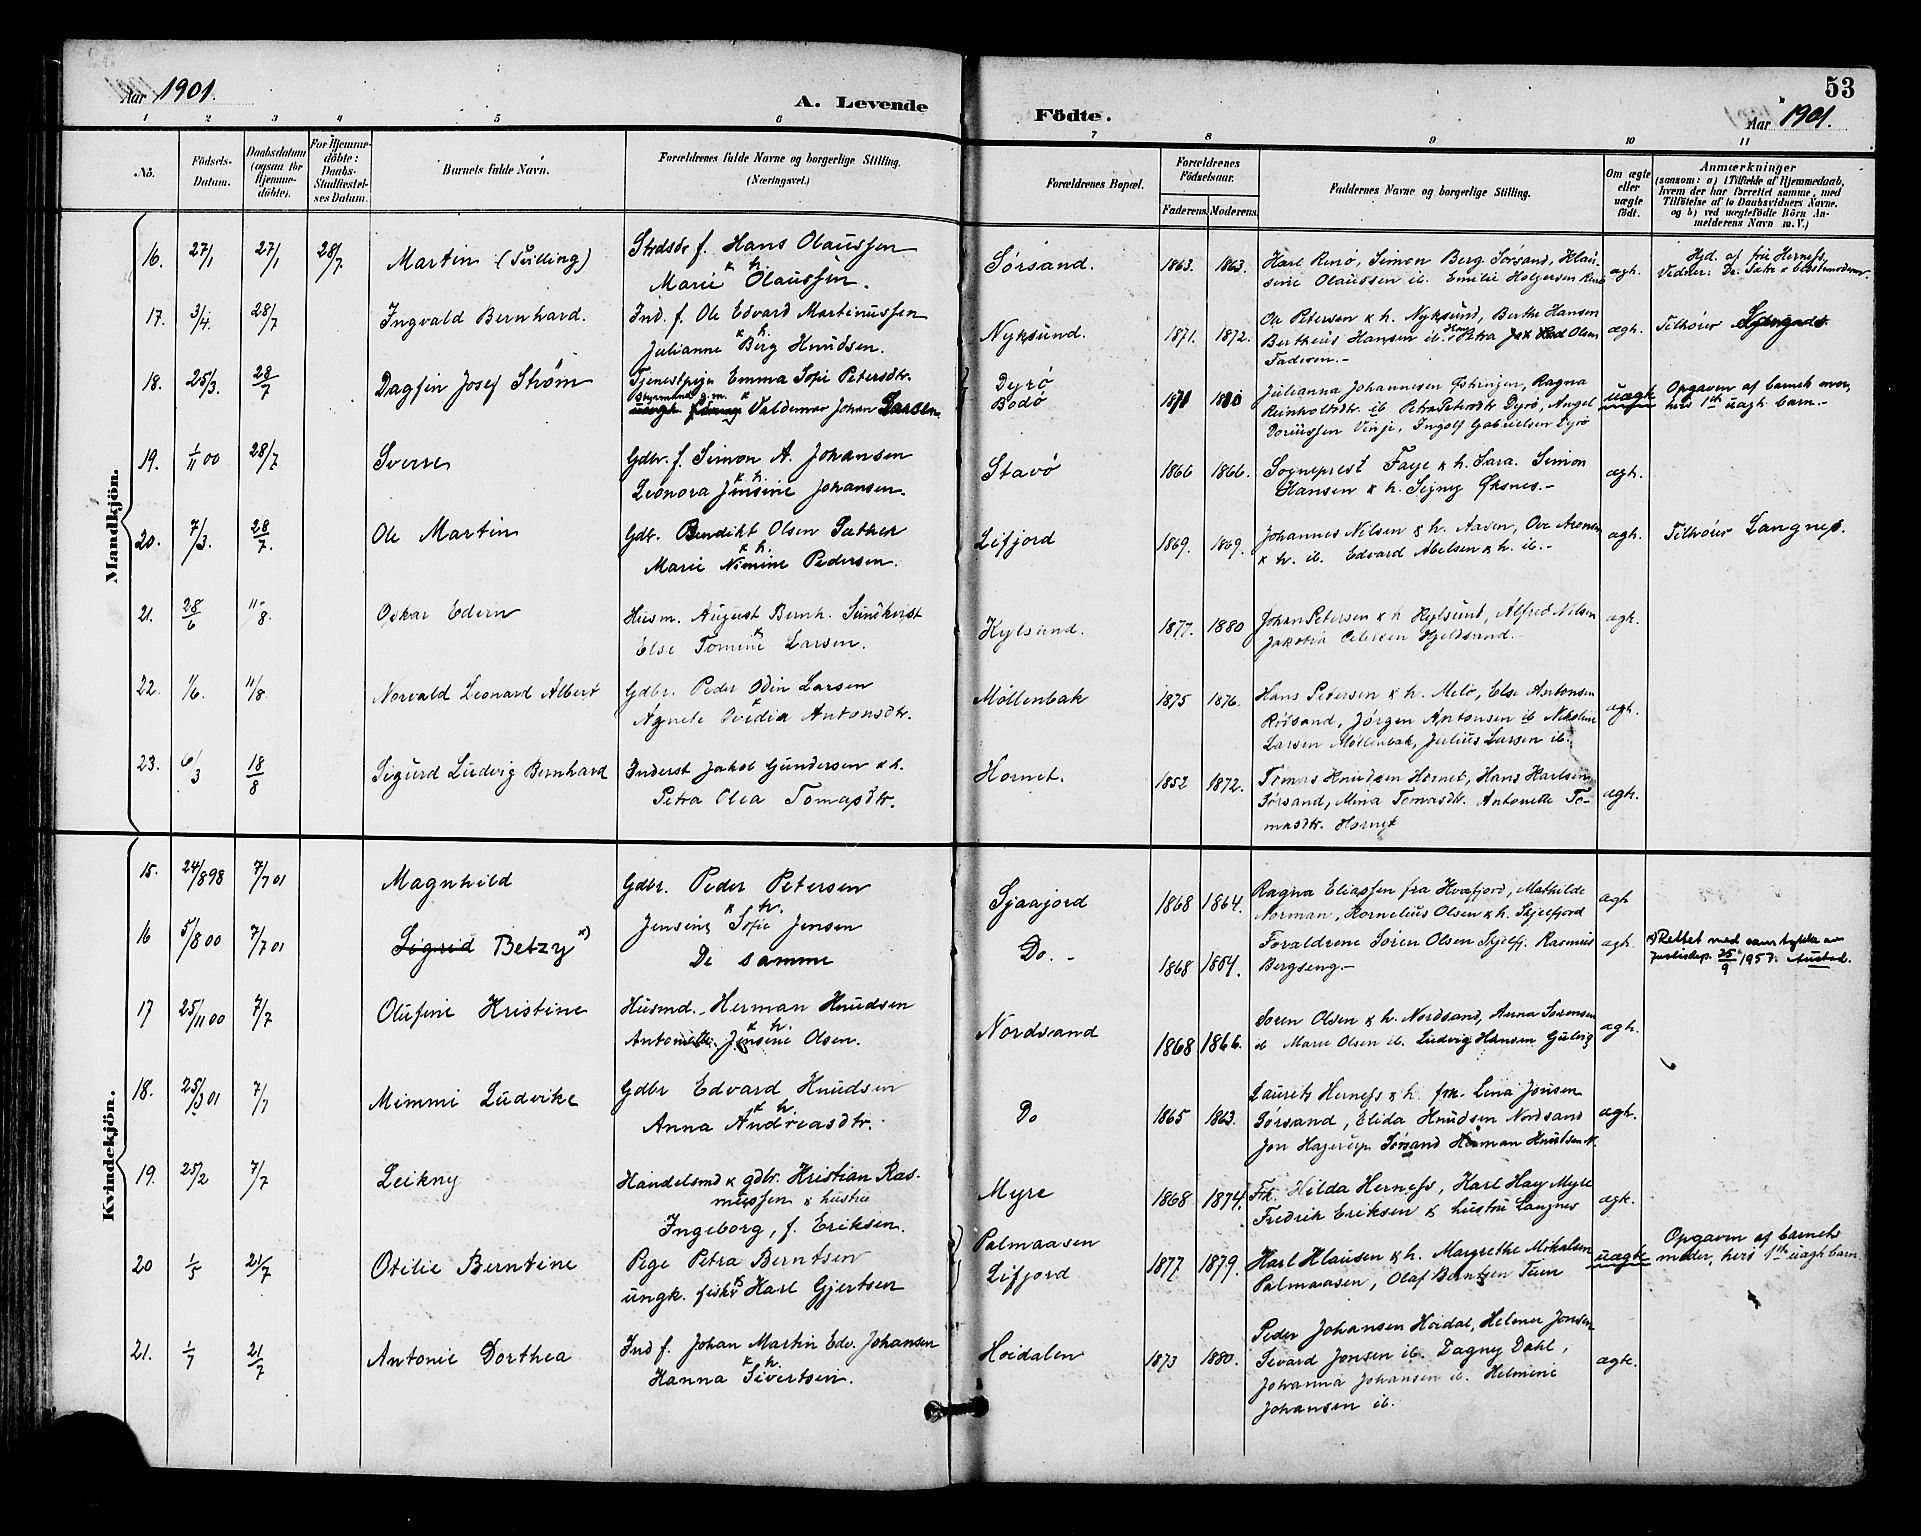 Aar 1901.
A. Levende
Födte.
53
Aar 1901.
1 2 3 4 5 6 7 8 9 10 11
No.
Födsels-Datum.
Daabsdatum (ogsaa for Hjemmedöbte).
For Hjemmedöbte: Daabs-Stadfæstelses Datum.
Barnets fulde Navn.
Forældrenes fulde Navne og borgerlige Stilling.
(Næringsvei.)
Forældrenes Bopæl.
Forældrenes Födselsaar.
Faderens. Moderens.
Faddernes Navne og borgerlige Stilling.
Om ægte eller uægte født.
Anmærkninger
(saasom: a) i Tilfælde af Hjemmedaab, hvem der har forrettet samme, med Tilföielse af to Daabsvidners Navne, og b) ved uægtefödte Börn Anmelderens Navn m. V.)
Mandkjön.
16. 27/1 27/1 28/7 Martin (Tvilling) Strdsdr f. Hans Olaussen
k h.
Marie Olaussen. Sørsand. 1863. 1863. Karl Renø, Simon Berg Sørsand, Klau-
sine Olaussen ib. Emilie Holgersen Renø ægh.
Hjd. af frk Herness,
Vidner: Dr. Sæbø k bestemoderen
17. 3/4. 28/7 Ingvald Bernhard. Ind. f. Ole Edvard Martinussen
k h.
Julianne Berg Knudsen. Nyksund. 1871. 1872. Ole Petersen k h. Nyksund, Berthe Hansen
Bertheus Hansen ib. Petra Olsen
Faderen.- ægh. Tilhører
18. 25/3. 28/7 Dagfin Josef Strøm Tjenestpige Emma Sofie Petersdtr.
k Valdemar Johan Dyrø
Bodø Julianna Johannesen, Ragna
Reinholtsdtr. ib Petra Petersdtr Dyrø, Angel
Doriussen Vinje, Ingolf Gabrielsen Dyrø uægte
Opgaven af barnets mor,
hvis 1ste uægh. barn.-
19. 1/11 00 28/7 Sverre Gdbr. f. Simon A. Johansen
k h.
Leonora Jensine Johansen. Stavø 1866 1866. Sogneprest Faye k h. Sara. Simon
Hansen k h. Signy Øksnes.- ægh.
20. 7/3. 28/7. Ole Martin Gdr. Bendikt Olsen Sæther
k h.
Marie Nimine Pedersen. Lifjord 1869. 1869. Johannes Nilsen k h. Aasen, Ove Aronsen
k h. ib. Edvard Abelsen k h. ib.- ægh. Tilhører Langnes.
21. 28/6 11/8 Oskar Edern Husm. August Bernh. Sundkvist
k
Else Tomine Larsen. Kylsund. 1877. 1880 Johan Petersen k h Kylsund, Alfred Nilsen
Jakobia Petersen Hjeldsand.- ægh.
22. 1/6. 11/8. Norvald Leonard Albert Gdbr. Peder Odin Larsen
k
Agnete Ovidia Antonsdtr. Møllenbak 1875 1876. Hans Petersen k h. Melø, Else Antonsen
Rødsand, Jørgen Antonsen ib Nikoline
Larsen Møllenbak, Julius Larsen ib. ægh.
23. 6/3 18/8 Sigurd Ludvig Bernhard Inderst Jakob Gundersen k h.
Petra Olea Tomasdtr. Hornet. 1852 1872. Tomas Knudsen Hornet, Hans Karlsen
Sørsand, Mina Tomasdtr. Antonette To-
masdtr. Hornet ægh.
Kvindekjön.
15. 24/8 98 7/7 01 Magnhild Gdbr. Peder Petersen
k h.
Jensine Sofie Jensen Sjaajord 1868 1864. Ragna Eliassen fra Kvafjord, Mathilde
Norman, Kornelius Olsen k h. Skjelfjord ægh
16 5/8 00 7/7 01 Sigrid Betzy x) De samme Do. - 1868 1864. Forældrene Søren Olsen Skjelfj. Rasmus
Bergseng.- ægh. x) Rettet med samtykke av
justisdep. 25/9 1957. Austad.
17 25/11 00 7/7 Olufine Kristine Husmd. Herman Knudsen
k h.
Antonette Jensine Olsen. Nordsand 1868 1866. Søren Olsen k h. Nordsand, Anna Sørensen
ib Marie Olsen ib. Ludvig Hansen Gulvig ægh.
18. 25/3 01 7/7 Mimmi Ludvike Gdbr Edvard Knudsen
k h.
Anna Andreasdtr. Do 1865 1863. Laurits Herness k h. frk. Lina Jensen
Sørsand, Elida Knudsen Nordsand
Jon Hagerup Sørsand Herman Knutsen N. ægh.
19. 25/2 7/7 Leikny Handelsmd k gdbr. Kristian Ras-
mussen k hustru
Ingeborg, f. Eriksen. Myre 1868 1874. Frk. Hilda Herness, Karl Hay Myre
Fredrik Eriksen k hustru Langnes ægh.
20 1/5 21/7 Otilie Berntine Pige Petra Berntsen
ungk. fisker Karl Gjertsen Palmaasen
Lifjord 1877. 1879. Karl Klausen k h. Margrethe Mikalsen
Palmaasen, Olaf Berntsen Tuen uægte
Opgaven af barnets
moder, hvis 1ste uægh barn.
21. 1/7 21/7 Antonie Dorthea Ind f. Johan Martin Edv. Johansen
k h.
Hanna Sivertsen. Høidalen 1873 1880. Peder Johansen Høidal, Helmer Jonsen
Sivard Jonsen ib. Dagny Dahl,
Johanna Johansen ib. Helmine
Johansen ib. ægte.